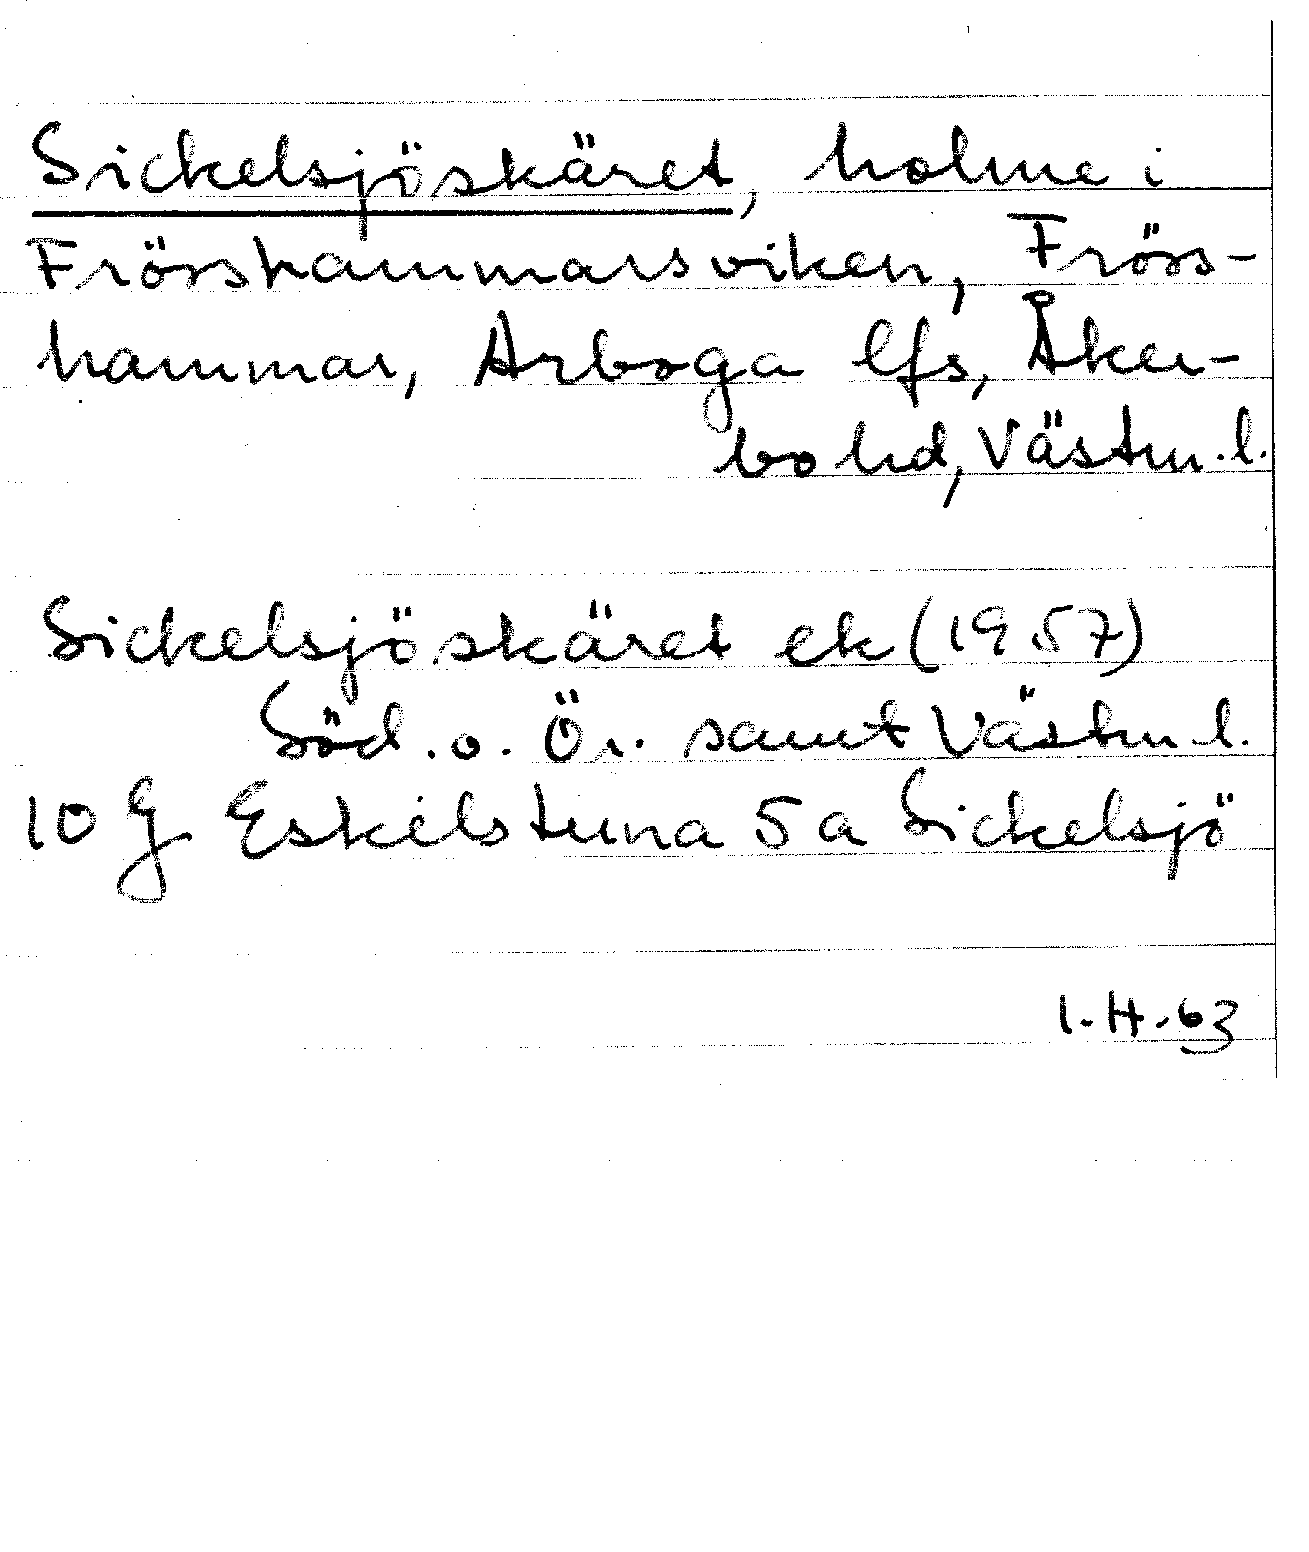 Sickelsjöskäret, holme i
Frörshammarsviken, Frörs-
hammar, Arboga lfs, Åker-
bo hd, Västm.l.
Sickelsjöskäret ek (1957)
Söd. o. Ör. samt Västm l.
10 G Eskilstuna 5 a Sickelsjö
I.H. 63